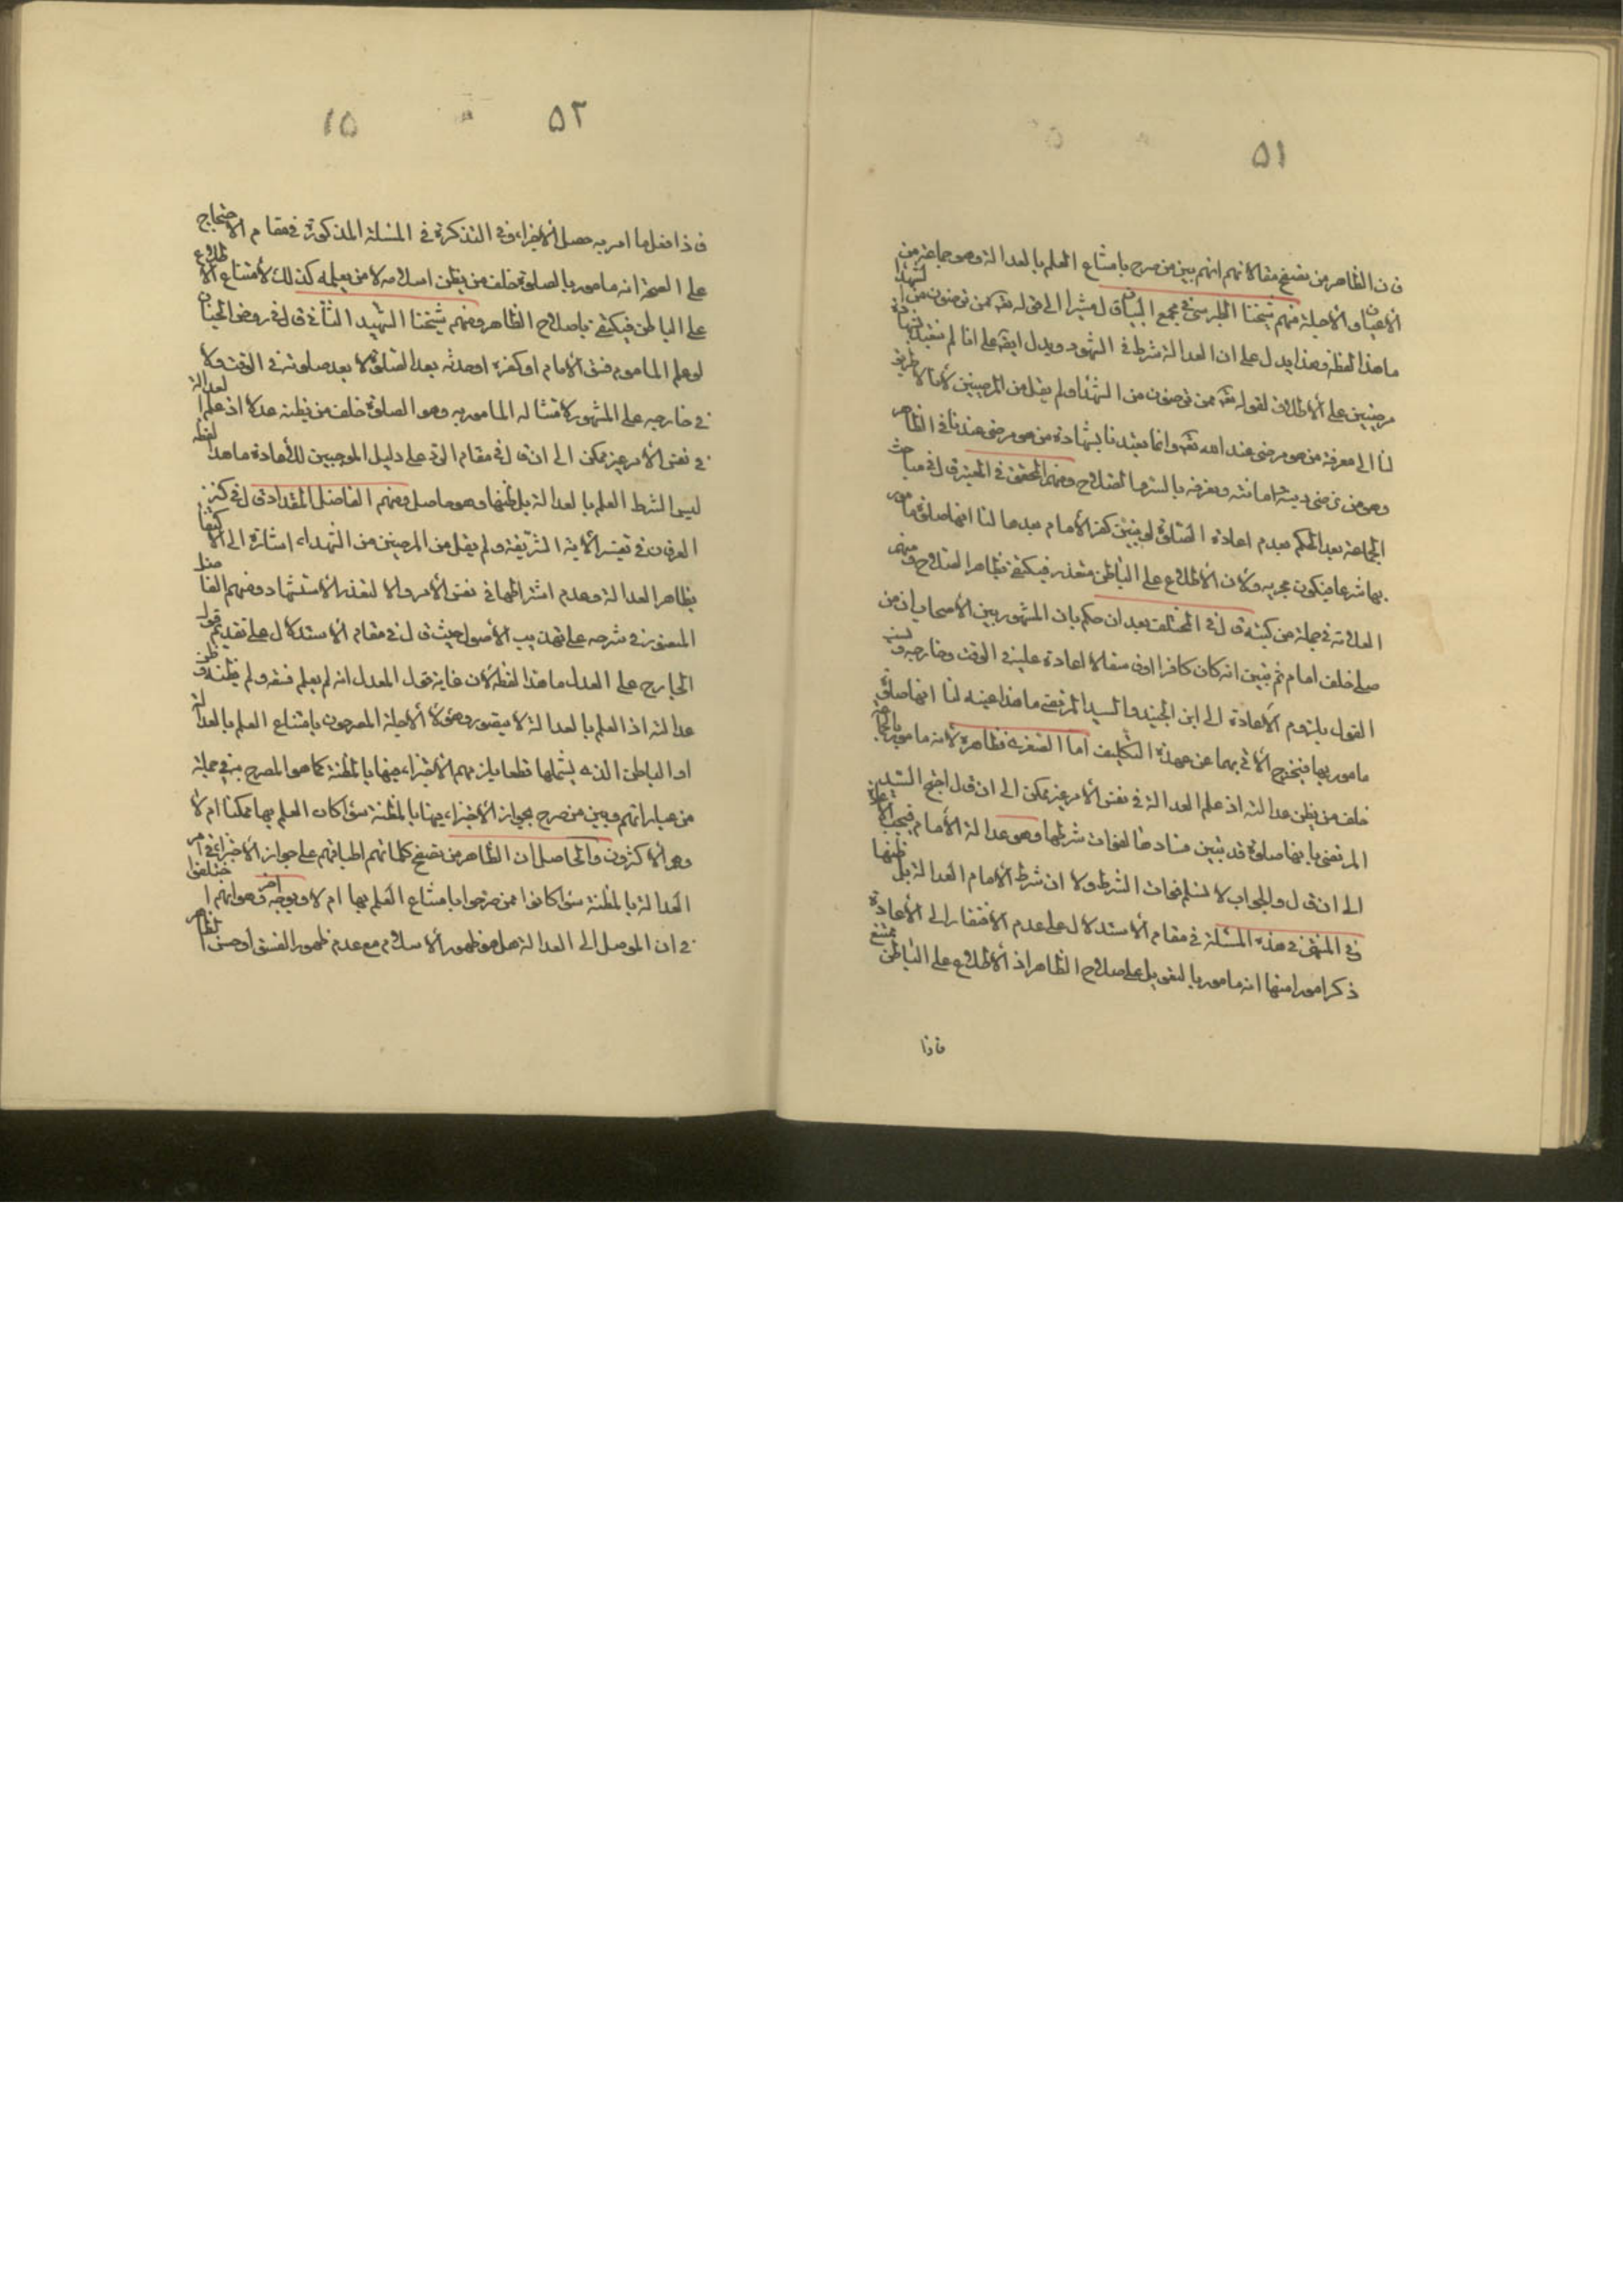 ٥١
فان الظاهر من تصفح مقالاتهم انهم بين من صرح بامتناع العلم بالعدالة وهو جماعة من
الاعيان والاجلة منهم شيخنا الطبرسي في مجمع البيان قال مشيرا الى قوله تعه ممن ترضون من الشهداء
ما هذا لفظه وهذا يدل على ان العدالة شرط في الشهود ويدل ايضه على انا لم نتعبد بشهادة
مرضيين على الاطلاق لقوله تعه ممن ترضون من الشهداء ولم يقل من المرضيين لانه لا طريق
لنا الى معرفة من هو مرضى عند الله تعه وانما تعبدنا بشهادة من هو مرضى عندنا في الظاهر
وهو من نرضى دينه وامانته ونعرفه بالستر والصلاح ومنهم المحقق في المعتبر قال في مباحث
الجماعة بعد الحكم بعدم اعادة الصلوة لو تبين كفر الامام بعدها لنا انها صلوة مامور
بها شرعا فيكون مجزيه ولان الاطلاع على الباطن متعذر فيكتفى بظاهر الصلاح ومنهم
العلامة في جملة من كتبه قال في المختلف بعد ان حكم بان المشهور بين الاصحاب ان من
صلى خلف امام ثم تبين انه كان كافرا او فاسقا لا اعادة عليه في الوقت وخارجه ونسب
القول بلزوم الاعادة الى ابن الجنيد والسيد المرتضى ما هذا عينه لنا انها صلوة
مامور بها فيخرج الاتي بهما عن عهدة التكليف اما الصغرى فظاهرة لانه مامور بالجماعة
خلف من يظن عدالته اذ علم العدالة في نفس الامر غير ممكن الى ان قال احتج السيد
المرتضى بانها صلوة قد تبين فسادها لفوات شرطها وهو عدالة الامام فيجب الاعادة
الى ان قال والجواب لا نسلم فوات الشرط ولا ان شرط الامام العدالة بل ظنها
وفي المنتهى في هذه المسئلة في مقام الاستدلال على عدم الافتقار الى الاعادة
ذكر امورا منها انه مامور بالتعويل على صلاح الظاهر اذ الاطلاع على الباطن ممتنع
فاذا
٥٢
١٥
فاذا فعل ما امر به حصل الاجزاء وفي التذكرة في المسئلة المذكورة في مقام الاحتجاج
على الصحة انه مامور بالصلوة خلف من يظن اسلامه لا من يعلمه كذلك لامتناع الاطلاع
على الباطن فيكتفى باصلاح الظاهر ومنهم شيخنا الشهيد الثاني قال في روض الجنان
لو علم الماموم فسق الامام او كفره او حدثه بعد الصلوة لا يعد صلوته في الوقت ولا
في خارجه على المشهور لامتثاله المامور به وهو الصلوة خلف من يظنه عدلا اذ علم العدالة
في نفس الامر غير ممكن الى ان قال في مقام الرد على دليل الموجبين للاعادة ما هذا لفظه
ليس الشرط العلم بالعدالة بل ظنها وهو حاصل ومنهم الفاضل المقداد قال في كنز
العرفان في تفسير الاية الشريفة ولم يقل من المرضيين من الشهداء اشارة الى الاكتفا
بظاهر العدالة وعدم اشتراطها في نفس الامر والا لتعذر الاستشهاد ومنهم الفاضل
المنصوري في شرحه على تهذيب الاصول حيث قال في مقام الاستدلال على تقديم قول
الجارح على المعدل ما هذا لفظه لان غاية قول المعدل انه لم يعلم فسقه ولم يظنه وظن
عدالته اذ العلم بالعدالة لا يتصور وهؤلاء الاجلة المصرحون بامتناع العلم بالعدالة
او الباطن الذي يشملها قطعا يلزمهم الاجتزاء فيها بالمظنة كما هو المصرح به في جملة
من عباراتهم وبين من صرح بجواز الاجتزاء فيها بالمظنة سواء كان العلم بها ممكنا ام لا
وهو الاكثرون والحاصل ان الظاهر من تصفح كلماتهم اطباقهم على جواز الاجتزاء في امر
العدالة بالمظنة سواء كانوا ممن صرحوا بامتناع العلم بها ام لا ويوجه امر وهو انهم اختلفوا
في ان الموصل الى العدالة هل هو ظهور الاسلام مع عدم ظهور الفسق او حسن الظاهر